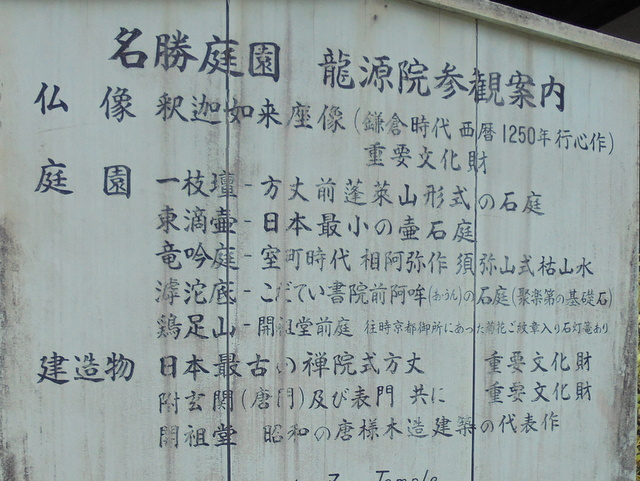 名勝庭園 龍源院参観案内
仏像 釈迦如来座像(鎌倉時代 西暦1250年行心作)
重要文化財
庭園 一枝壇-方丈前蓬莱山形式の石庭
東滴壷-日本最小の壷石庭
竜吟庭-室町時代 相阿弥作 須弥山式枯山水
滹沱底-こだてい書院前阿吽(あうん)の石庭(聚楽第の基礎石)
鶏足山-開祖堂前庭 往時京都御所にあった菊花ご紋章入り石灯篭あり
建造物 日本最古の禅院式方丈 重要文化財
附玄関(唐門)及び表門 共に 重要文化財
開祖堂 昭和の唐様木造建築の代表作
Zen Temple